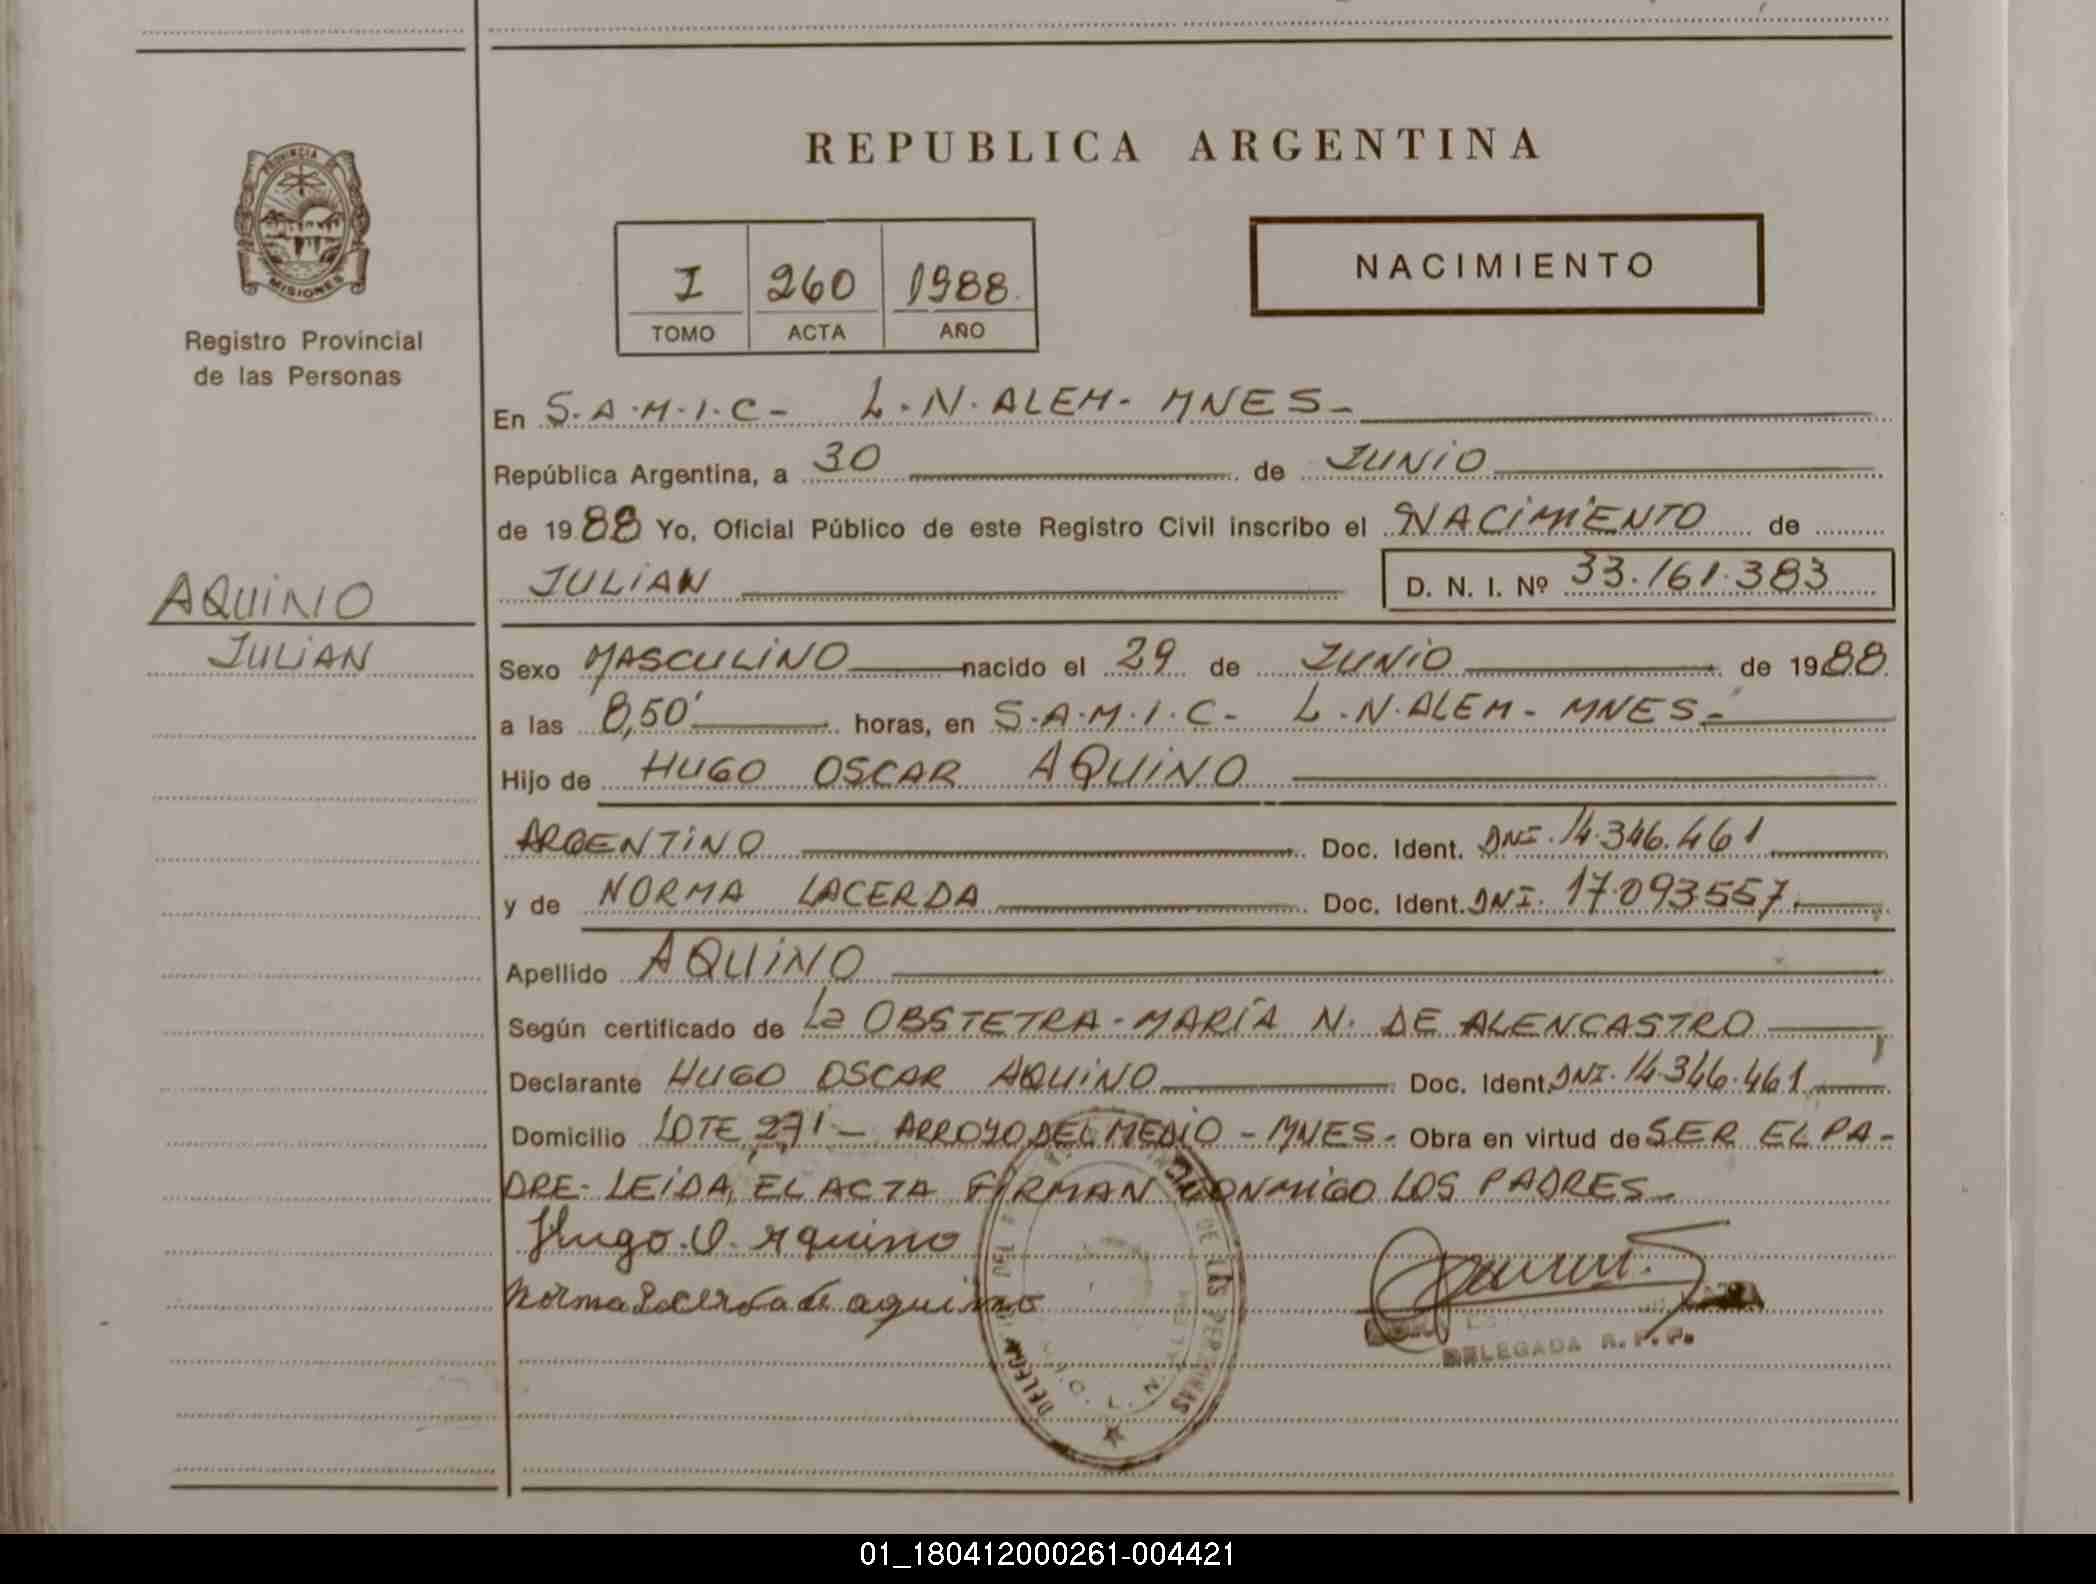 REPUBLICA ARGENTINA
PROVINCIA DE
MISIONES
Registro Provincial
de las Personas
I 260 1988
TOMO ACTA AÑO
NACIMIENTO
En S.A.M.I.C- L.N.ALEM- MNES-
República Argentina, a 30 de JUNIO
de 1988 Yo, Oficial Público de este Registro Civil inscribo el NACIMIENTO de
JULIAN D. N. I. Nº 33.161.383
AQUINO
JULIAN
Sexo MASCULINO nacido el 29 de JUNIO de 1988
a las 8,50' horas, en S.A.M.I.C- L.N.ALEM- MNES-
Hijo de HUGO OSCAR AQUINO
ARGENTINO Doc. Ident. DNI. 14.346.461
y de NORMA LACERDA Doc. Ident. DNI. 17.093.557.
Apellido AQUINO
Según certificado de La OBSTETRA-MARÍA N. DE ALENCASTRO
Declarante HUGO OSCAR AQUINO Doc. Ident. DNI. 14.346.461
Domicilio LOTE 271- ARROYO DEL MEDIO - MNES- Obra en virtud de SER EL PA-
DRE- LEIDA, EL ACTA FIRMAN CONMIGO LOS PADRES-
Hugo. O. Aquino
Norma Lacerda de aquino
DE LAS PERSONAS
DELEGADA R. P. P.
01_180412000261-004421